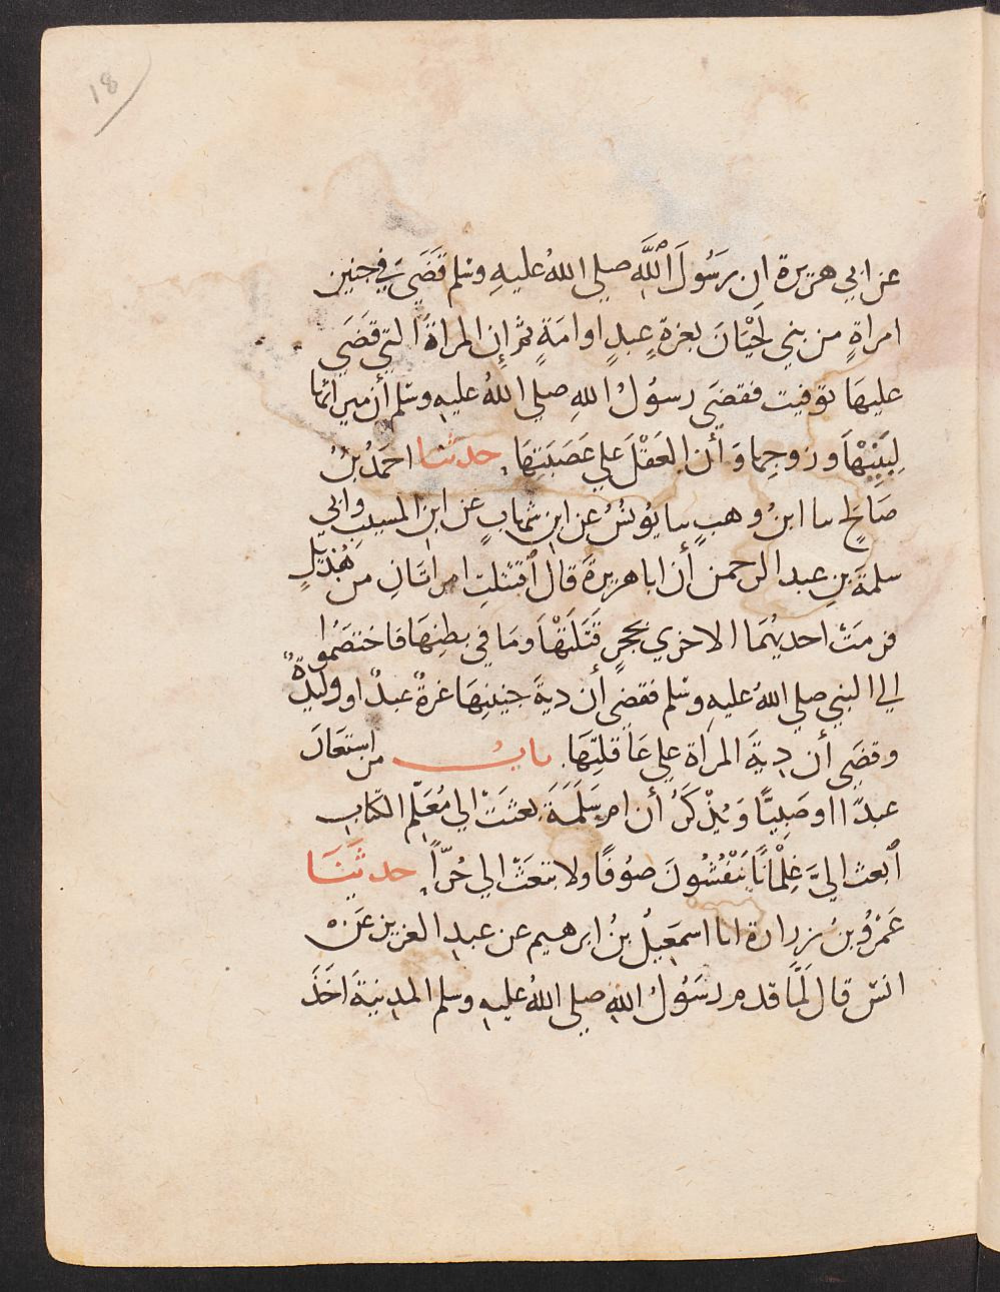 18
عن ابي هريرة ان رَسُولَ اللَّهِ صلي اللهُ عليهِ وسلم قَضَيَ في جنين
امراةٍ من بني لَحْيَانَ بغرةٍ عبدٍ او امَةٍ ثم إن المراةَ التي قَضَي
عليهَا توفيت فقضَي رسوُلُ اللهِ صلي اللهُ عليهِ وسلم أن ميراثها
لِبَنِيْهَا وزوجِها وَأن العَقْلَ علي عَصَبَتهَا حدثنا احمَدُ بنُ
صَالحٍ سا ابنُ وهبٍ سا يوُنسُ عن ابنِ شهابٍ عن ابنِ المسيب وابي
سلمةَ بنِ عبد الرحمن أن ابا هريرةَ قال اقتتلتِ امراتَانِ من هُذَيْلٍ
فرمَتْ احديهُمَا الاخري بحجرٍ قَتَلَتْهَا وَمَا في بطنِهَا فاختصَمُوا
الي النبي صلي اللهُ عليهِ وسلم فقضي أن ديةَ جنينِهَا غرةٌ عبدٌ او وليدةٌ
وقضَي أن دِيةَ المراة علي عَاقلتِهَا بابُ من استعَانَ
عبدًا او صَبِيًّا وَيُذْكَرُ أن ام سَلَمَةَ بعثَتْ الي مُعَلِّمِ الكتابِ
اَبعث اليَّ غِلْمَانًا يَنْفُشُونَ صُوفًا ولا تبعَثْ الي حُرّاً حدثَنَا
عَمْرُو بنُ زرارة انا اسمَعِيلُ بنُ ابرهيم عن عبدِ العزيز عَنْ
انسٍ قال لَمَّا قدم رسَوُلُ اللهِ صلي اللهُ عليهِ وسلم المدينةَ اخَذَ